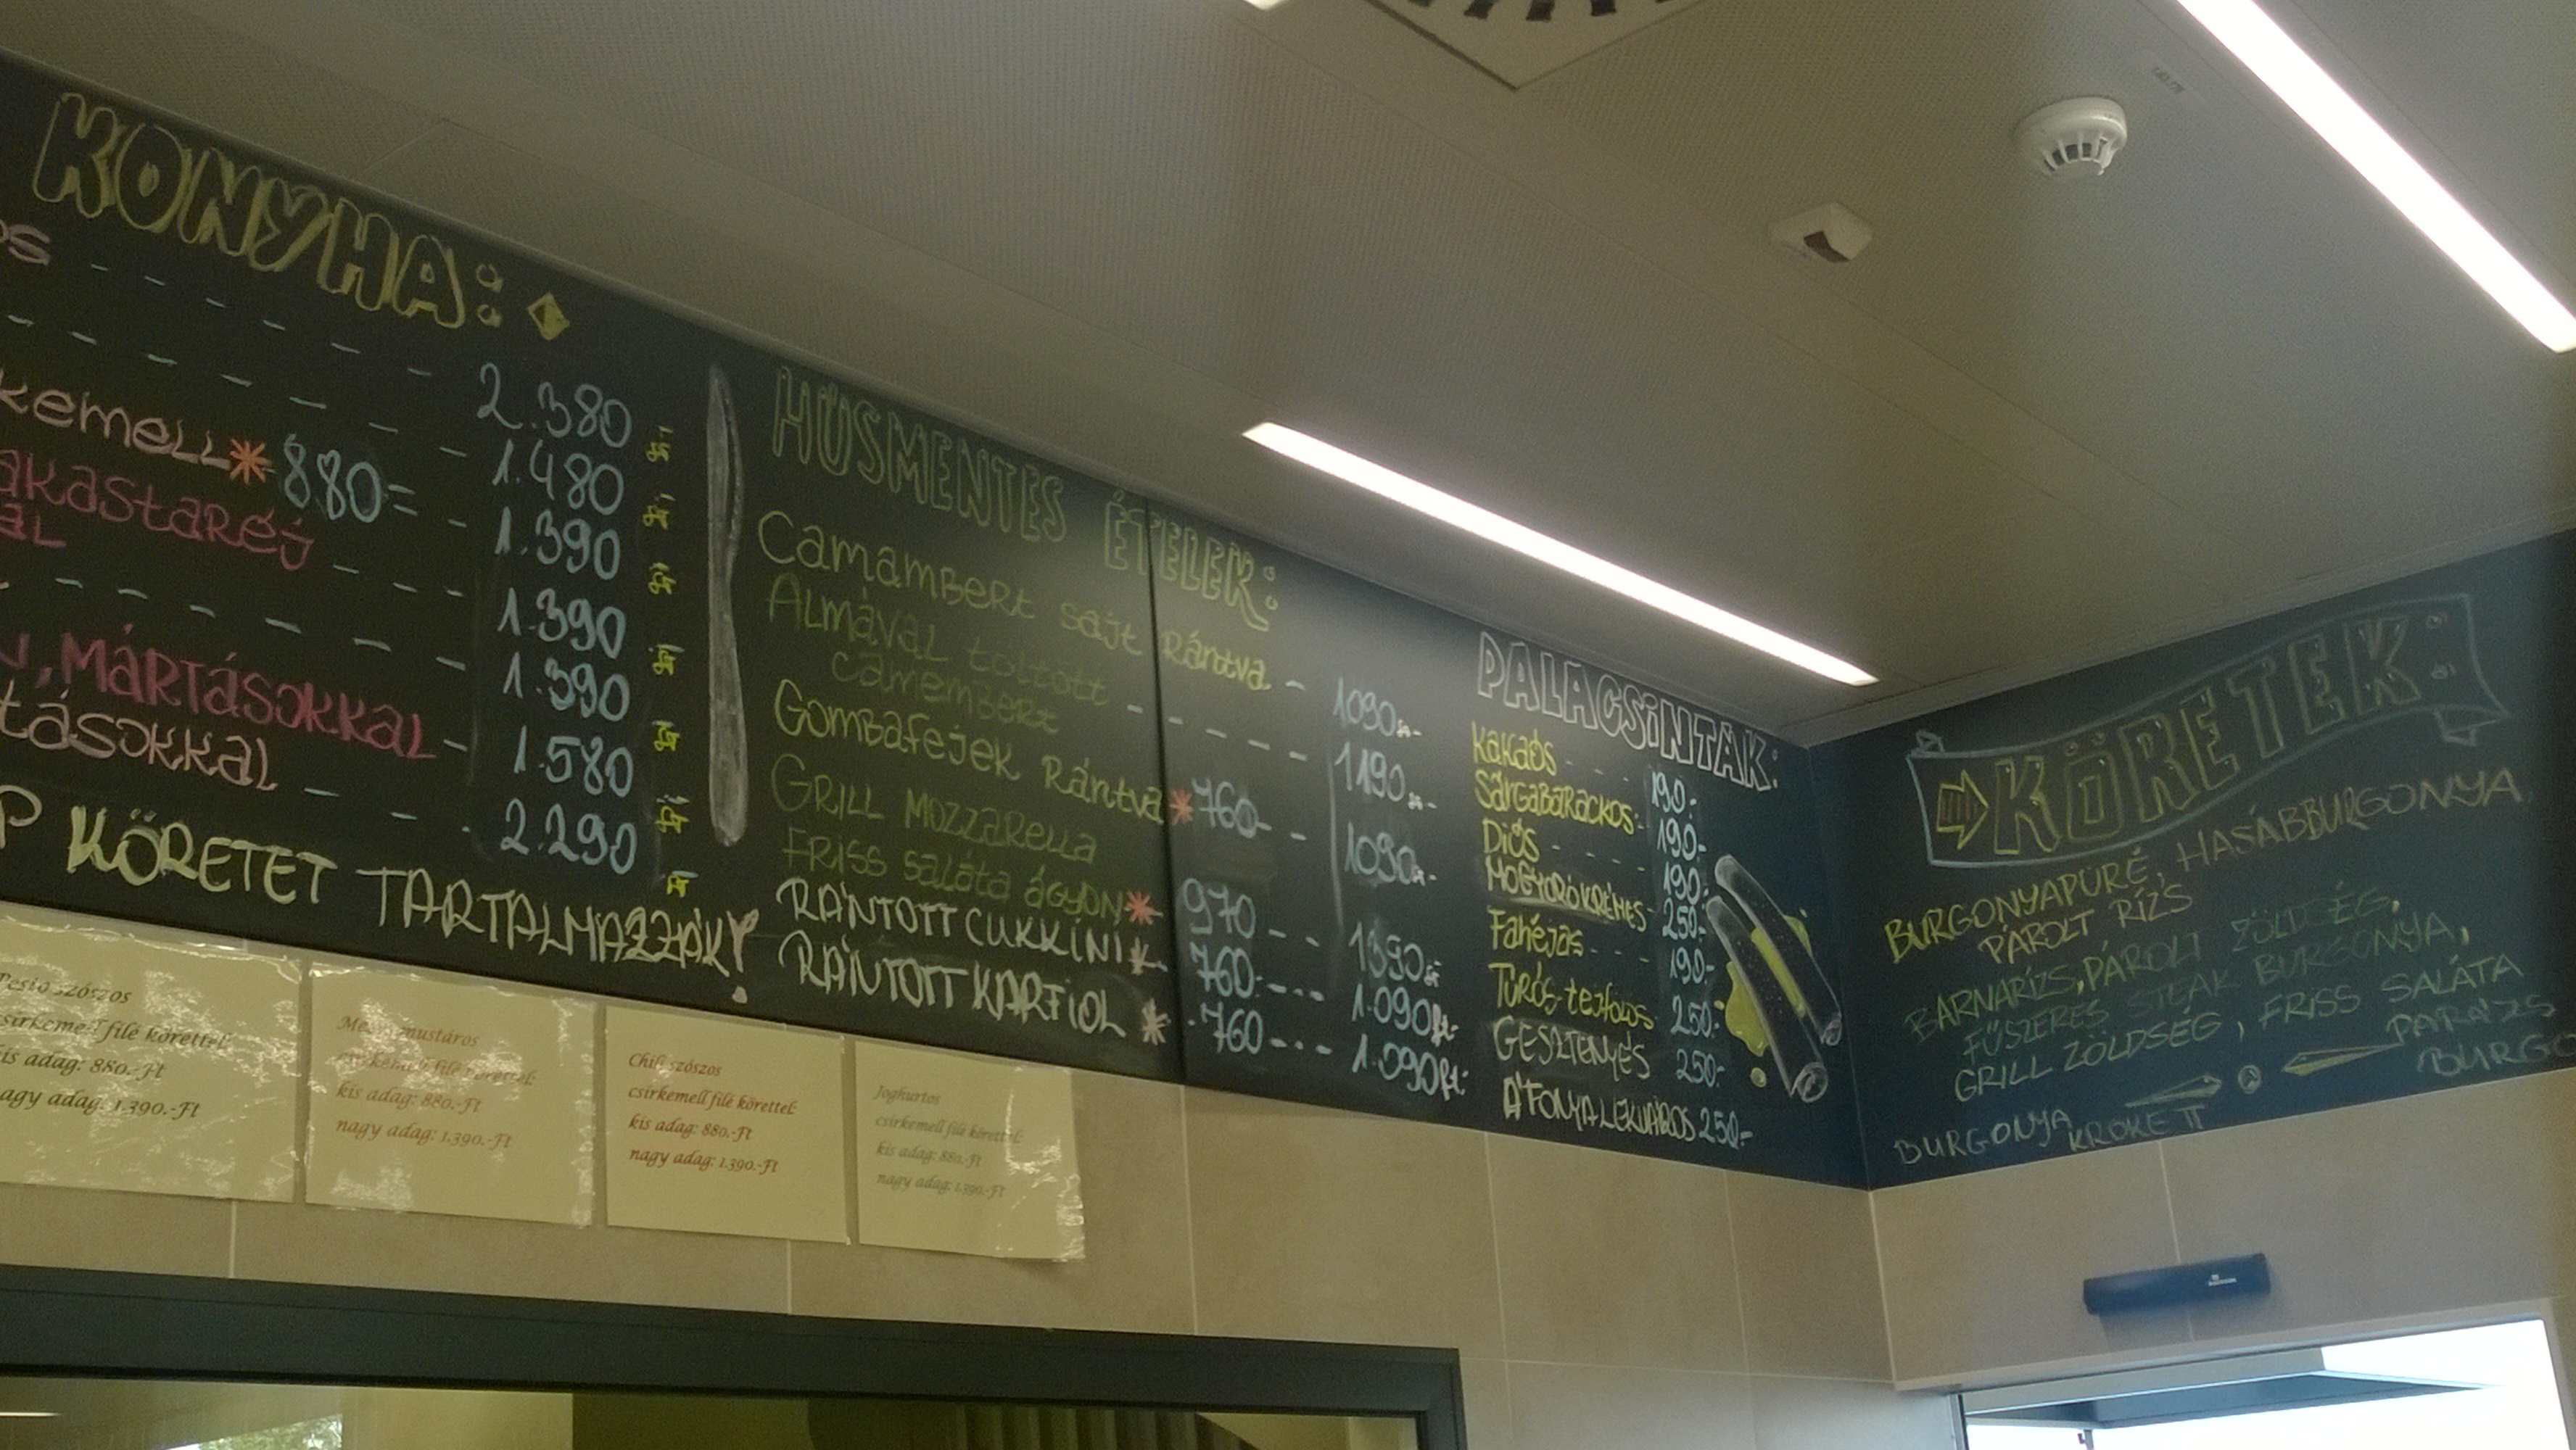 KONYHA:
2.380 Ft
1.480 Ft
kemell * 880= - 1.390 Ft
akastaréj
al
1.390 Ft
1.390 Ft
, MÁRTÁSOKKAL - 1.580 Ft
tásokkal 2.290 Ft
P KÖRETET TARTALMAZZÁK!
HÚSMENTES ÉTELEK:
Camambert sajt rántva - 1090.-
Almával töltött
camembert 1190.-
Gombafejek rántva * 760 - - 1090.-
Grill mozzarella
friss saláta ágyon * 970 - - 1390.-
RÁNTOTT CUKKÍNI * 760.- 1.090 Ft.
RÁNTOTT KARFIOL * 760 --- 1.090 Ft.
PALACSINTÁK:
Kakaós 190.-
Sárgabarackos 190.-
Diós 190.-
Mogyorókrémes 250.-
Fahéjas 190.-
Túrós-tejfölös 250.-
GESZTENYÉS 250.-
ÁFONYALEKVÁROS 250.-
KÖRETEK:
BURGONYAPÜRÉ, HASÁBBURGONYA
PÁROLT RÍZS
BARNARÍZS, PÁROLT ZÖLDSÉG,
FŰSZERES STEAK BURGONYA,
GRILL ZÖLDSÉG, FRISS SALÁTA
PARÁZS
BURGO
BURGONYA
KROKETT
Pesto szószos
csirkemell filé körettel:
kis adag: 880.-Ft
nagy adag: 1.390.-Ft
mustáros
csirkemell filé körettel:
kis adag: 880.-Ft
nagy adag: 1.390.-Ft
Chili szószos
csirkemell filé körettel:
kis adag: 880.-Ft
nagy adag: 1.390.-Ft
Joghurtos
csirkemell filé körettel:
kis adag: 880.-Ft
nagy adag: 1.390.-Ft